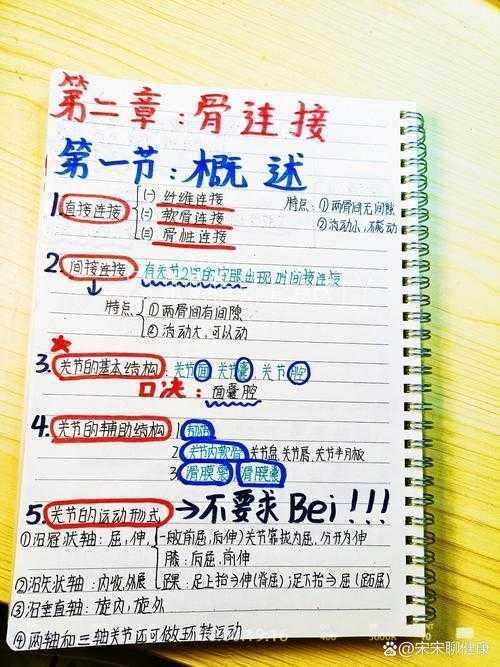 第二章:骨连接
第一节:概述
1. 直接连接
(一) 纤维连接
(二) 软骨连接
(三) 骨性连接
特点: ① 两骨间无间隙
② 活动小,不能动
2. 间接连接
有关节2字的字眼出现时间接连接
特点 ① 两骨间有间隙
② 活动大,可以动
3. 关节的基本结构: 关节面 关节囊, 关节腔
口决: 面囊腔
4. 关节的辅助结构 1
2 关节内软骨 关节盘, 关节唇, 关节半月板
3 滑膜襞 滑膜囊
5. 关节的运动形式 → 不要求Bei!!!
①沿冠状轴: 屈,伸, 一般(前屈,后伸)关节靠拢为屈,分开为伸
膝: 后屈,前伸
②沿矢状轴: 内收,外展 踝: 足上抬→伸(背屈); 足下抬→屈(跖屈)
③沿垂直轴: 旋内,旋外
④两轴和三轴关节还可做环转运动
@宋宋聊健康